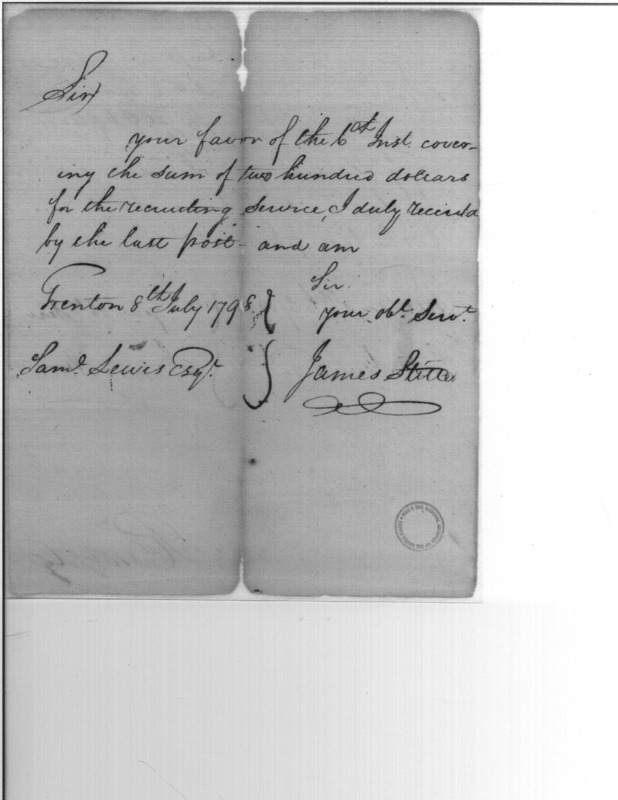 Sir
your favor of the 6th Inst. cover-
ing the sum of two hundred dollars
for the recruiting service, I duly received
by the last post - and am
Sir.
Trenton 8th July 1798. your obt. Servt.
Saml. Lewis Esqr. James Stille